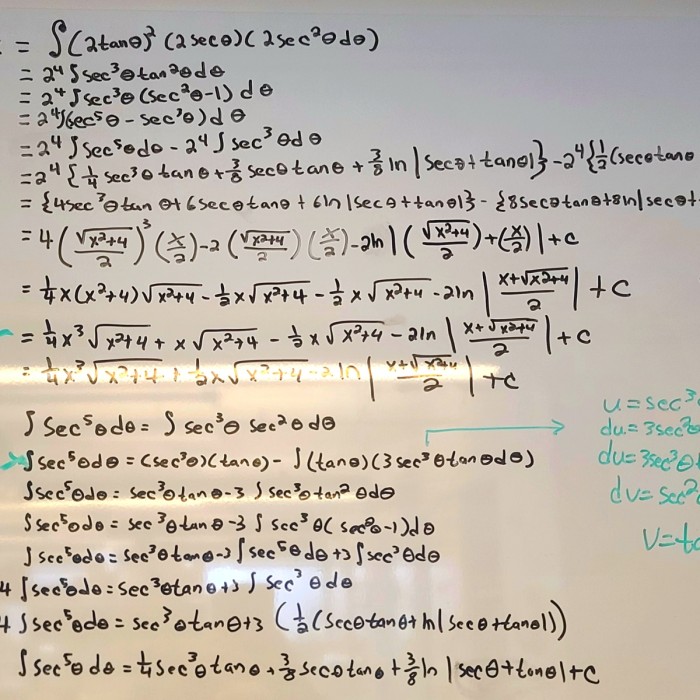 = ∫(2tanθ)² (2secθ)(2sec²θdθ)
= 2⁴ ∫sec³θtan²θdθ
= 2⁴ ∫sec³θ(sec²θ-1)dθ
= 2⁴∫(sec⁵θ - sec³θ)dθ
= 2⁴ ∫sec⁵θdθ - 2⁴ ∫sec³θdθ
= 2⁴ {¼ sec³θtanθ + ⅜ secθtanθ + ⅜ ln|secθ+tanθ|} - 2⁴{½(secθtanθ
= {4sec³θtanθ + 6secθtanθ + 6ln|secθ+tanθ|} - {8secθtanθ+8ln|secθ+
= 4(√(x²+4)/2)³(x/2) - 2(√(x²+4)/2)(x/2) - 2ln|(√(x²+4)/2)+(x/2)|+c
= ¼x(x²+4)√(x²+4) - ½x√(x²+4) - ½x√(x²+4) - 2ln|(x+√(x²+4))/2|+c
= ¼x³√(x²+4) + x√(x²+4) - ½x√(x²+4) - 2ln|(x+√(x²+4))/2|+c
= ¼x³√(x²+4) + ½x√(x²+4) - 2ln|(x+√(x²+4))/2|+c
∫sec⁵θdθ = ∫sec³θ sec²θdθ
∫sec⁵θdθ = (sec³θ)(tanθ) - ∫(tanθ)(3sec³θtanθdθ)
∫sec⁵θdθ = sec³θtanθ - 3∫sec³θtan²θdθ
∫sec⁵θdθ = sec³θtanθ - 3∫sec³θ(sec²θ-1)dθ
∫sec⁵θdθ = sec³θtanθ - 3∫sec⁵θdθ + 3∫sec³θdθ
4∫sec⁵θdθ = sec³θtanθ + 3∫sec³θdθ
4∫sec⁵θdθ = sec³θtanθ + 3(½(secθtanθ + ln|secθ+tanθ|))
∫sec⁵θdθ = ¼sec³θtanθ + ⅜secθtanθ + ⅜ln|secθ+tanθ|+c
u = sec³
du = 3sec²θ
du = 3sec³θ
dv = sec²
v = ta